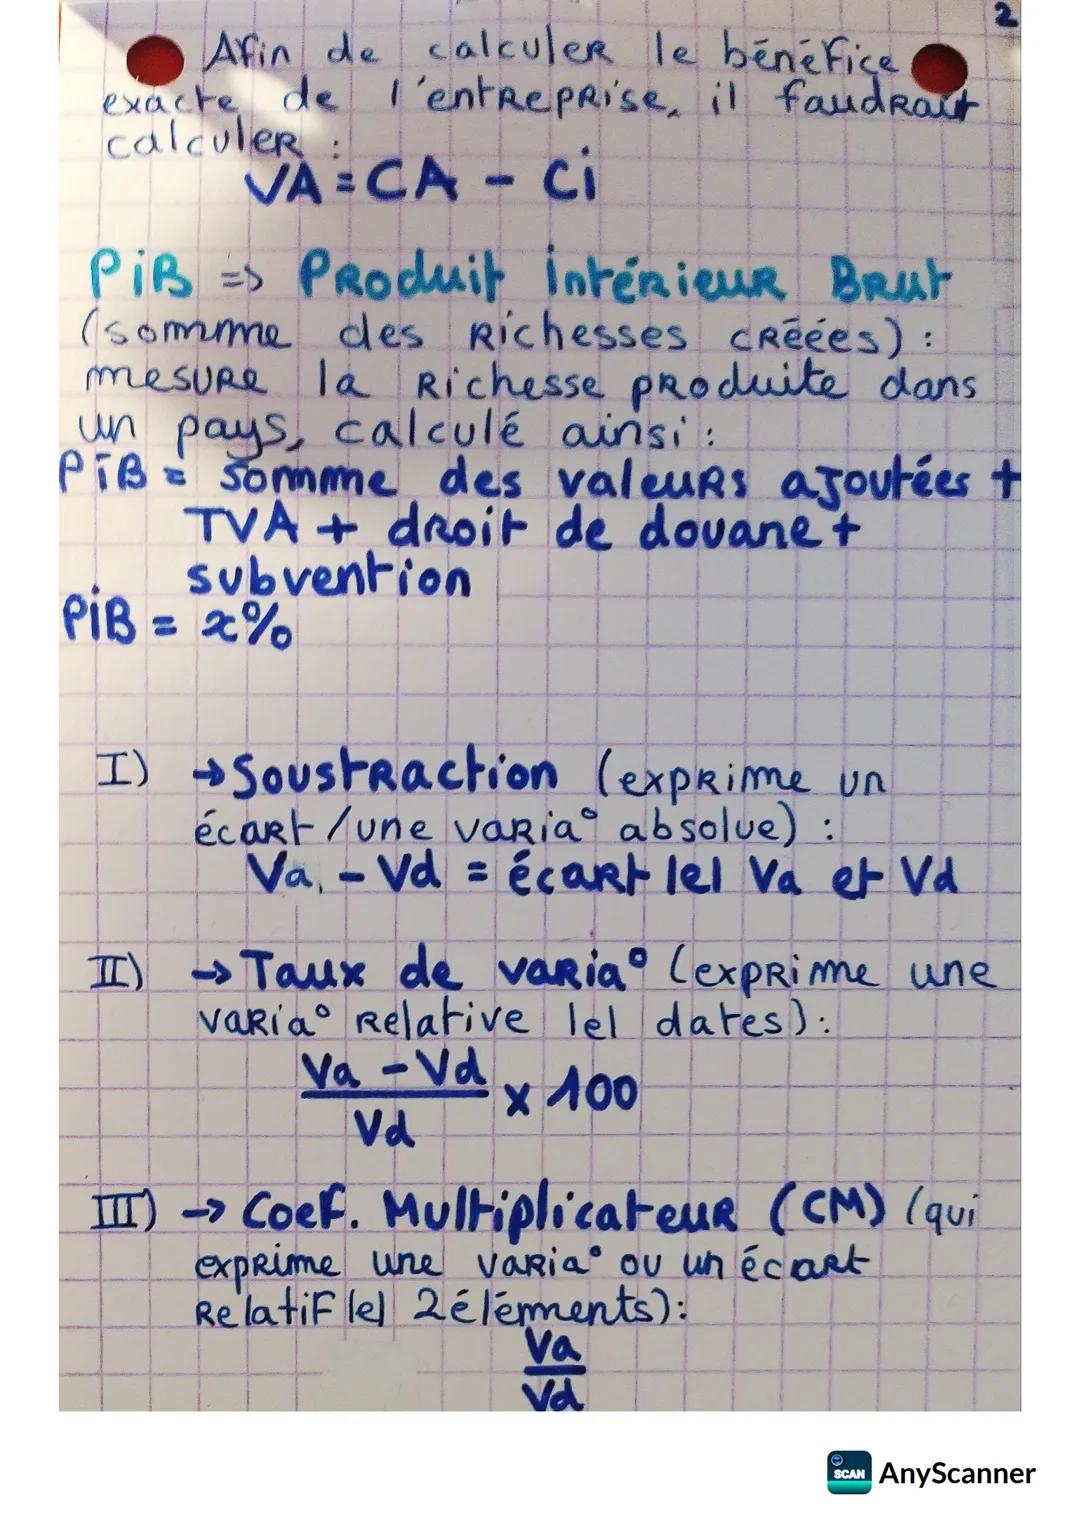 2
Afin de calculer le bénéfice
exacte de l'entreprise, il faudrait
calculer :
VA = CA - Ci
PiB => Produit intérieur Brut
(somme des Richesses créées) :
mesure la Richesse produite dans
un pays, calculé ainsi :
PiB = Somme des valeurs ajoutées +
TVA + droit de douane +
subvention
PiB = x%
I) → Soustraction (exprime un
écart / une varia° absolue) :
Va - Vd = écart lel Va et Vd
II) → Taux de varia° (exprime une
varia° Relative lel dates) :
Va - Vd
x 100
Vd
III) → Coef. Multiplicateur (CM) (qui
exprime une varia° ou un écart
Relatif lel 2 éléments) :
Va
Vd
SCAN AnyScanner